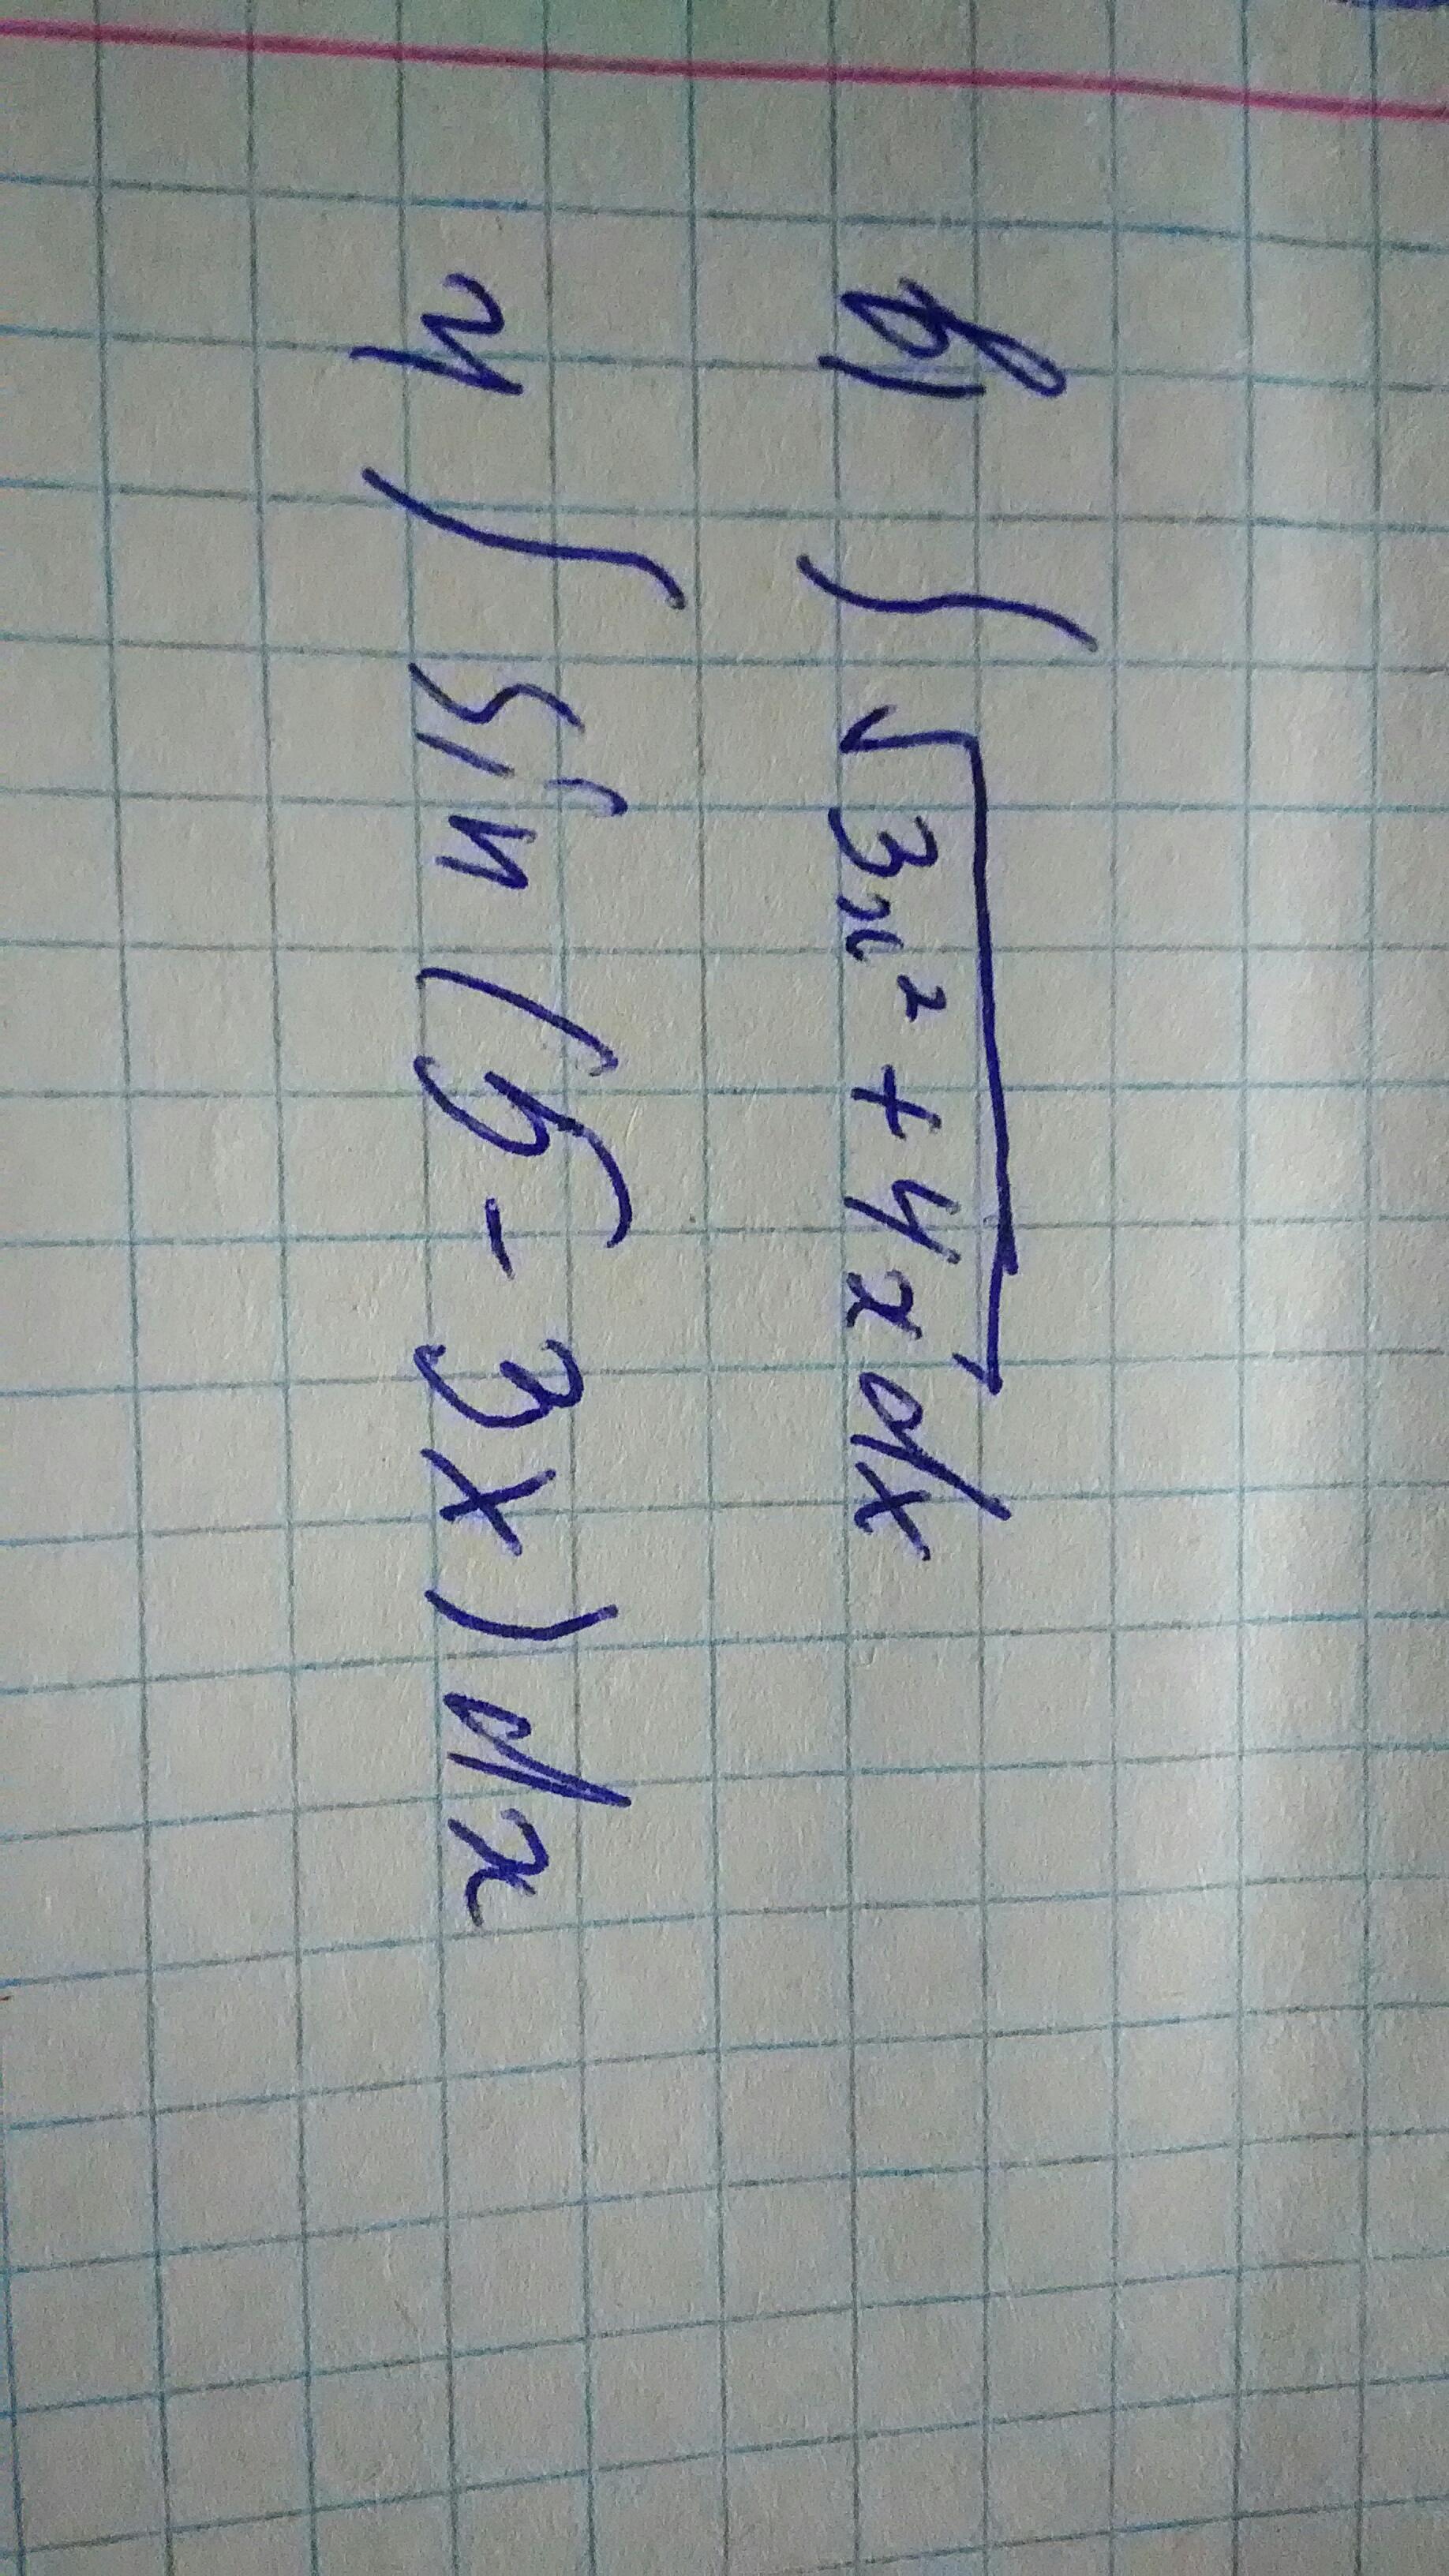 в) ∫ √3x² + 4x dx
г) ∫ sin (5 - 3x) dx